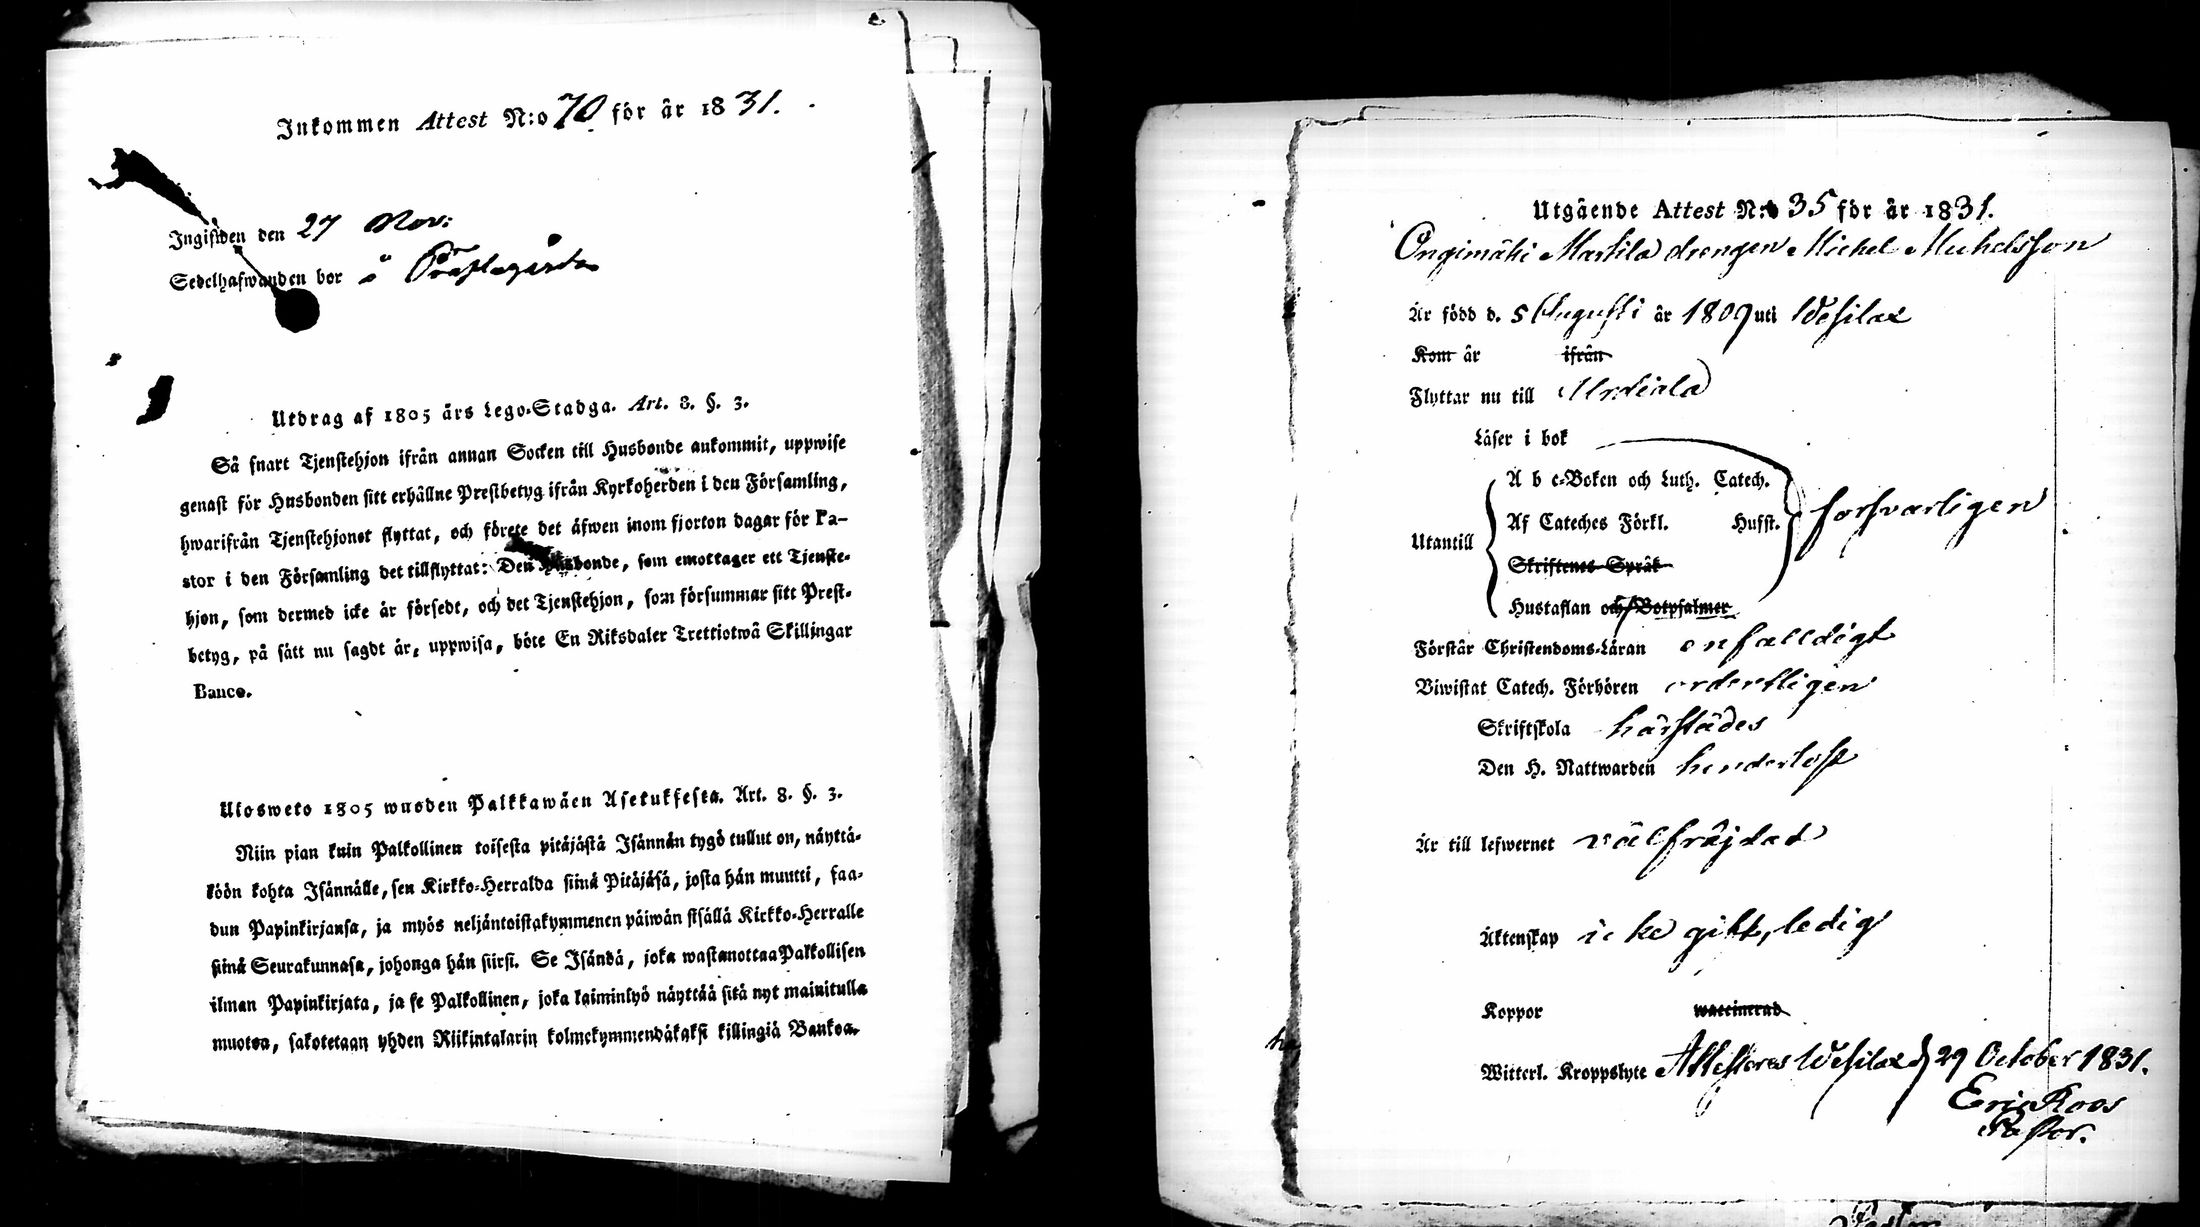 Inkommen Attest N:o 70 för år 1831.
Ingifwen den 27 Nov:
Sedelhafwanden bor å Prästegården
Utdrag af 1805 års Lego-Stadga. Art. 8. §. 3.
Så snart Tjenstehjon ifrån annan Socken till Husbonde ankommit, uppwise
genast för Husbonden sitt erhållne Prestbetyg ifrån Kyrkoherden i den Församling,
hwarifrån Tjenstehjonet flyttat, och förete det äfwen inom fjorton dagar för Pa-
stor i den Församling det tillflyttat: Den Husbonde, som emottager ett Tjenste-
hjon, som dermed icke är försedt, och det Tjenstehjon, som försummar sitt Prest-
betyg, på sätt nu sagdt är, uppwisa, böte En Riksdaler Trettiotwå Skillingar
Banco.
Ulosweto 1805 wuoden Palkkawäen Asetuksesta. Art. 8. §. 3.
Niin pian kuin Palkollinen toisesta pitäjästä Isännän tygö tullut on, näyttä-
köön kohta Isännälle, sen Kirkko-Herralda siinä Pitäjäsä, josta hän muutti, saa-
dun Papinkirjansa, ja myös neljäntoistakymmenen päiwän sisällä Kirkko-Herralle
siinä Seurakunnasa, johonga hän siirsi. Se Isändä, joka wastanottaa Palkollisen
ilman Papinkirjata, ja se Palkollinen, joka laiminlyö näyttää sitä nyt mainitulla
muotoa, sakotetaan yhden Riikintalarin kolmekymmendäkaksi killingiä Bankoa.
Utgående Attest N:o 35 för år 1831.
Ongimäki Markila drengen Michel Michelsson
Är född d. 5 Augusti år 1809 uti Wesilax
Kom år ifrån
Flyttar nu till Urdiala
Läser i bok
A b c-Boken och Luth. Catech.
Af Cateches Förkl. Hufst. försvarligen
Utantill
Skriftenes Språk
Hustaflan och Botpsalmer
Förstår Christendoms-Läran enfalldigt
Biwistat Catech. Förhören ordentligen
Skriftskola härstädes
Den H. Nattwarden
Är till lefwernet välfräjdad
Äktenskap icke gift, ledig
Koppor waccinerad
Witterl. Kroppslyte Attesteras Wesilax d 29 October 1831.
Eric Roos
Pastor.